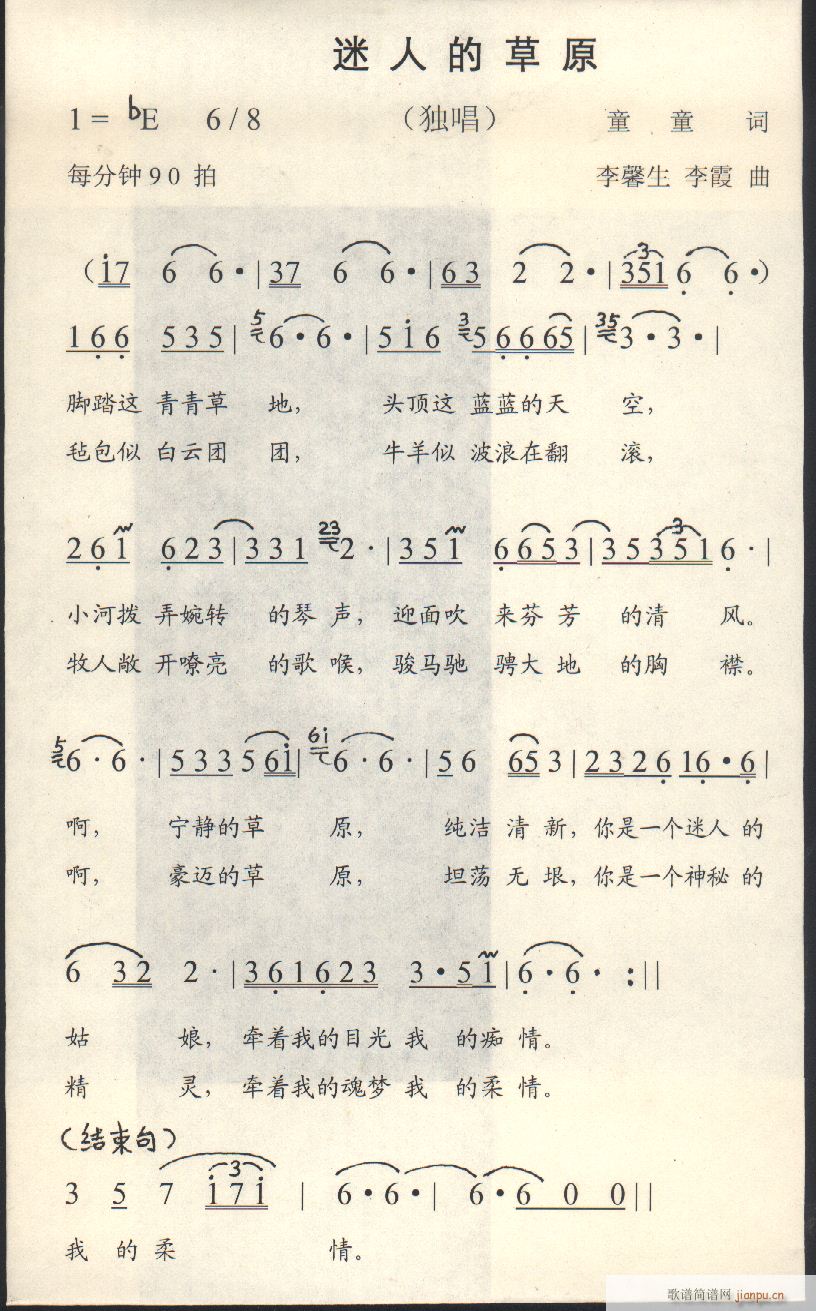 迷人的草原
1=♭E 6/8 （独唱） 童童 词
每分钟90拍 李馨生 李霞 曲
（i7 6 6·|37 6 6·|63 2 2·|351 6 6·）
166 535|6·6·|5i6 56665|3·3·|
脚踏这 青青草 地， 头顶这 蓝蓝的天 空，
毡包似 白云团 团， 牛羊似 波浪在翻 滚，
261 623|331 2·|351 6653|35351 6·|
小河拨 弄婉转 的琴 声， 迎面吹 来芬芳 的清 风。
牧人敞 开嘹亮 的歌 喉， 骏马驰 骋大地 的胸 襟。
6·6·|533561|6·6·|56 653|2326 16·6|
啊， 宁静的草 原， 纯洁清新，你是一个迷人的
啊， 豪迈的草 原， 坦荡无垠，你是一个神秘的
6 32 2·|361623 3·51|6·6·:||
姑 娘，牵着我的目光我 的痴情。
精 灵，牵着我的魂梦我 的柔情。
（结束句）
3 5 7 i7i | 6·6·| 6·6 0 0||
我 的 柔 情。
歌谱简谱网 jianpu.cn